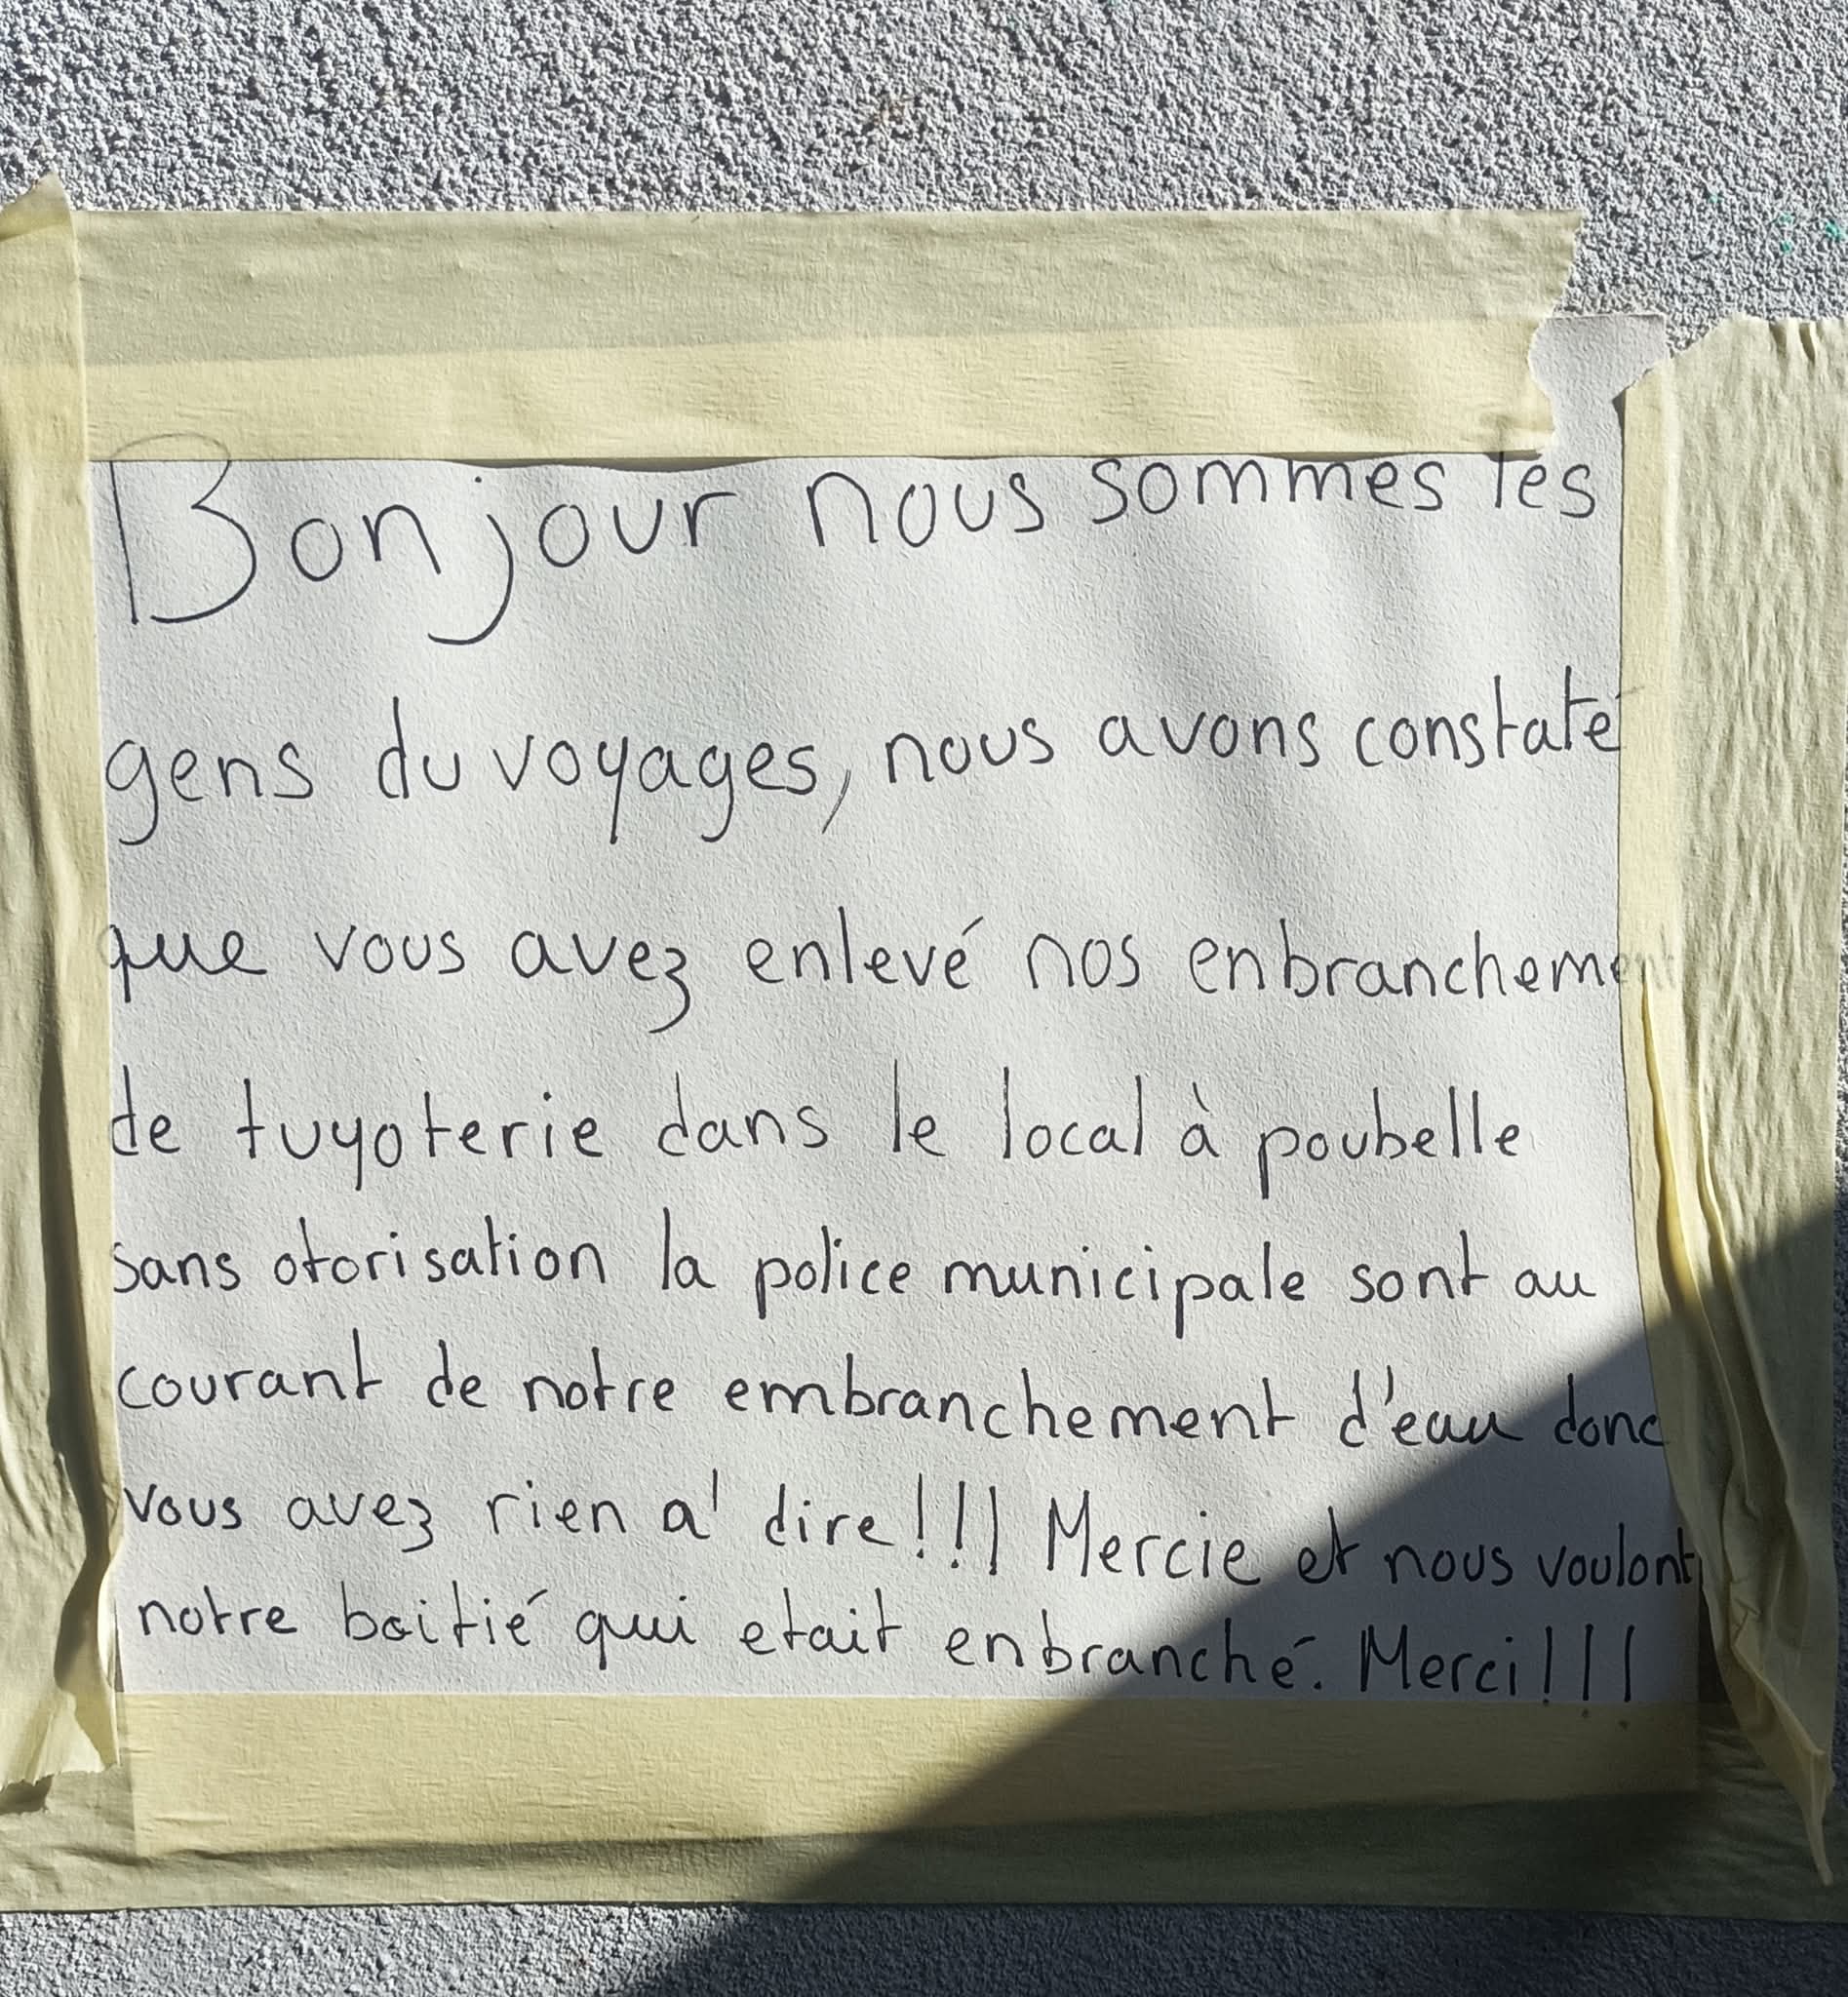 Bonjour nous sommes les
gens du voyages, nous avons constaté
que vous avez enlevé nos enbranchement
de tuyoterie dans le local à poubelle
sans otorisation la police municipale sont au
courant de notre embranchement d'eau donc
vous avez rien a' dire!!! Mercie et nous voulont
notre boitié qui etait enbranché. Merci!!!